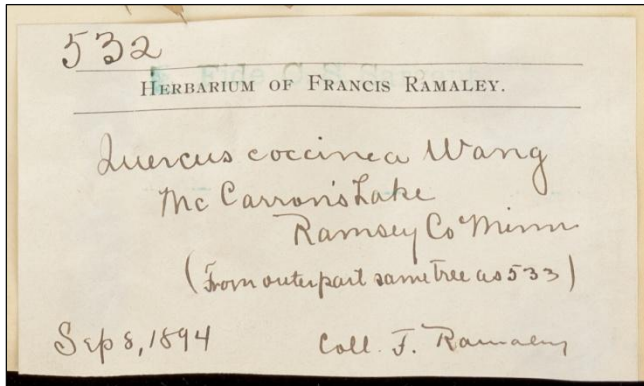 532
Fide C S Sargent
HERBARIUM OF FRANCIS RAMALEY.
Quercus coccinea Wang
Mc Carron's Lake
Ramsey Co Minn
(From outer part same tree as 533)
Sep 8, 1894 Coll. F. Ramaley